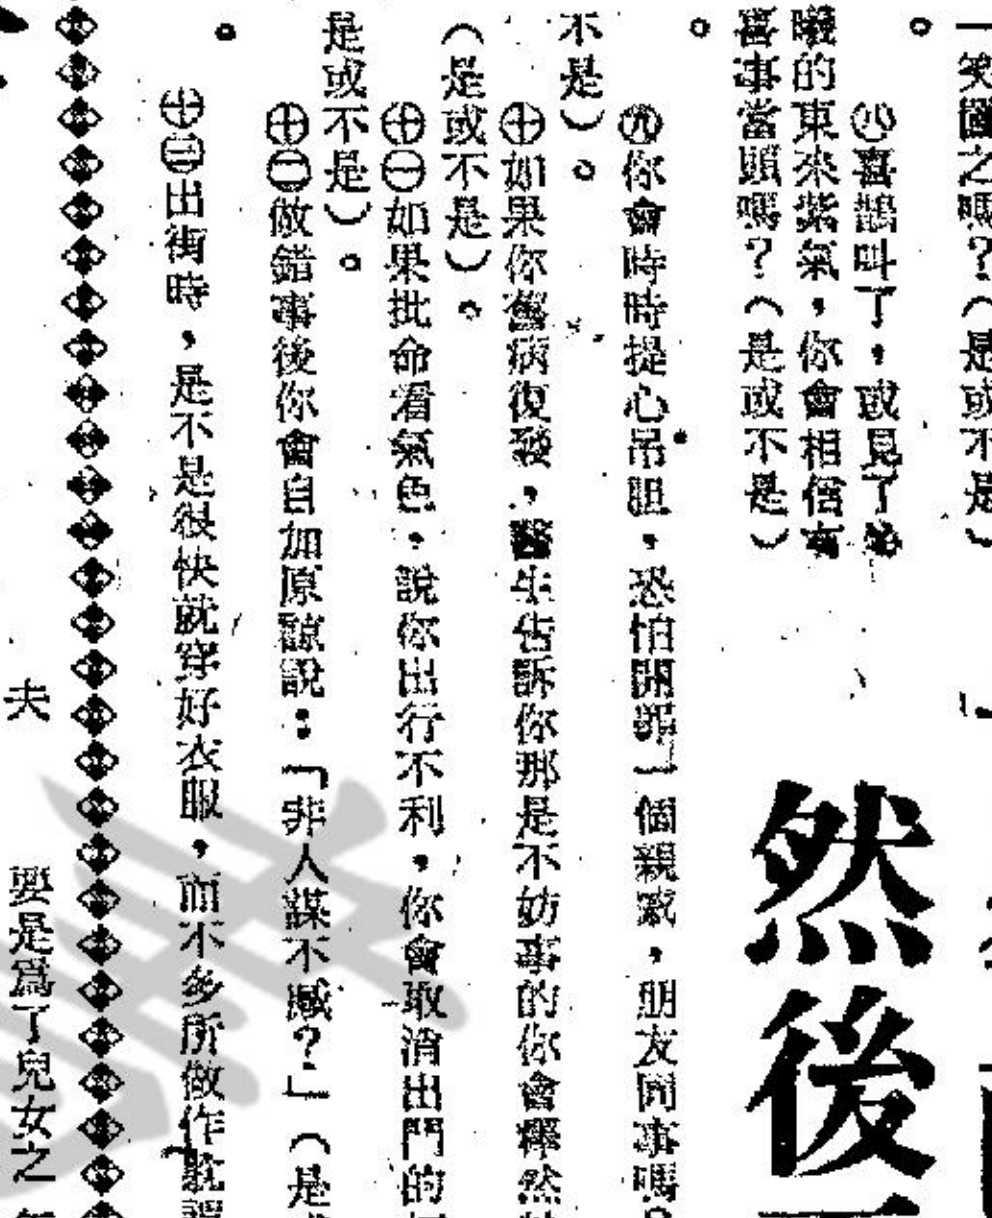 一笑置之嗎？（是或不是）
。
㈧喜鵲叫了，或見了
曦的東來紫氣，你會相信有
喜事當頭嗎？（是或不是）
。
㈨你會時時提心吊胆，恐怕開罪一個親戚，朋友同事嗎？
不是）。
㊉如果你舊病復發，醫生告訴你那是不妨事的你會釋然
（是或不是）。
㊉㊀如果批命看氣色，說你出行不利，你會取消出門的
是或不是）。
㊉㊁做錯事後你會自加原諒說：「非人謀不臧？」（是
。
㊉㊂出街時，是不是很快就穿好衣服，而不多所做作耽
然後
夫
要是爲了兒女之